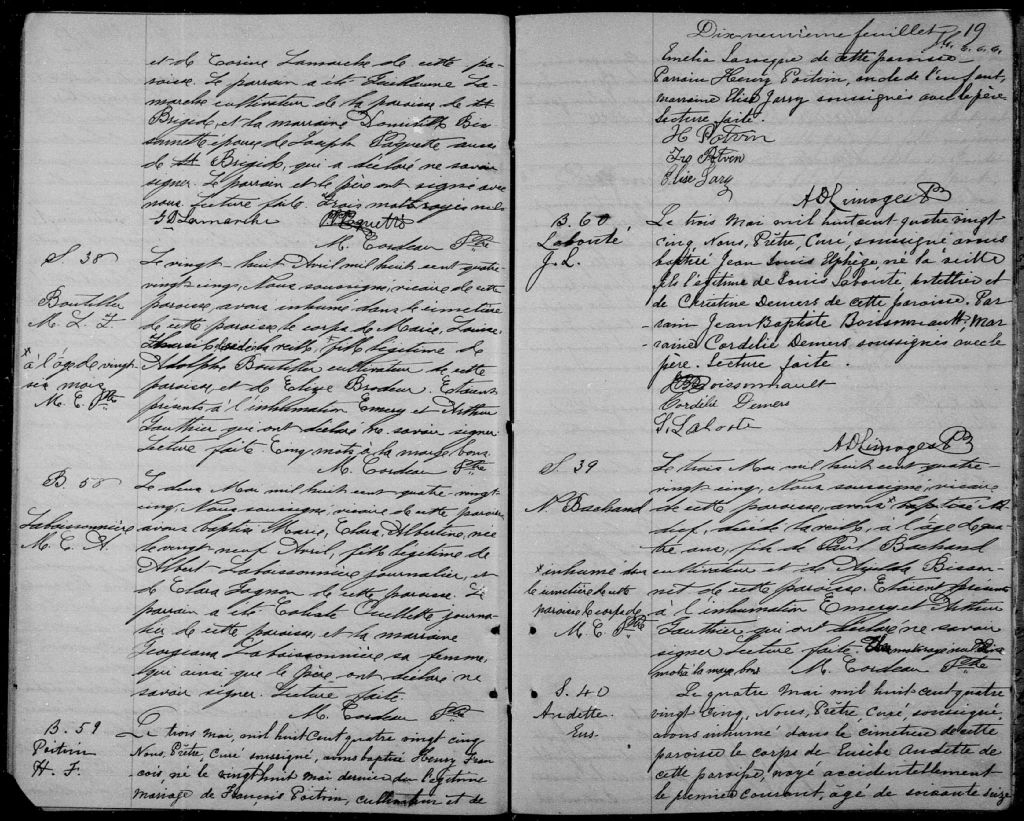 et de Corine Lamarche de cette pa-
roisse. Le parrain a été Guillaume La-
marche cultivateur de la paroisse de St
Brigide, et la marraine Domitilde Bis-
sonnette épouse de Joseph Paquette aussi
de St Brigide, qui a déclaré ne savoir
signer. Le parrain et le père ont signé avec
nous. Lecture faite. Trois mots rayés nuls
Lamarche Paquette
M. Cordeau Ptre
S. 38
Boutillier
M. L. F.
* à l'âge de vingt-
six mois
M. C. Ptre
Le vingt-huit Avril mil huit cent quatre-
vingt cinq, Nous soussigné, vicaire de cette
paroisse, avons inhumé dans le cimetière
de cette paroisse le corps de Marie, Louise,
décédée la veille,* fille légitime de
Adolphe Boutillier cultivateur de cette
paroisse, et de Elize Brodeur. Etaient
présents à l'inhumation Emery et Arthur
Gauthier qui ont déclaré ne savoir signer.
Lecture faite. Cinq mots à la marge bons.
M. Cordeau Ptre
B. 58
Labissonnière
M. C. A.
Le deux Mai mil huit cent quatre-vingt
cinq, Nous soussigné, vicaire de cette paroisse
avons baptisé Marie, Clara, Albertine, née
le vingt neuf Avril, fille légitime de
Albert Labissonnière journalier, et
de Clara Gagnon de cette paroisse. Le
parrain a été Calixte Ouellette journa-
lier de cette paroisse, et la marraine
Georgiana Labissonnière sa femme,
qui ainsi que le père, ont déclaré ne
savoir signer. Lecture faite.
M. Cordeau Ptre
B. 59
Poitvin
H. F.
Le trois mai, mil huit cent quatre vingt cinq
Nous, Prêtre, Curé soussigné, avons baptisé Henry Fran
cois, né le vingt huit mai dernier du légitime
mariage de François Poitvin, cultivateur et de
Dix-neuvième feuillet 19
Emélia Larocque de cette paroisse-
Parrain Henry Poitvin, oncle de l'enfant,
marraine Elise Jarry soussignés avec le père
Lecture faite.
H Potvin
Frs Potvin
Elise Jary
A D Limoges P
B. 60
Labonté
J. L.
Le trois Mai mil huit cent quatre vingt
cinq Nous, Prêtre, Curé, soussigné avons
baptisé Jean Louis Elphège né la veille
fils légitime de Louis Labonté, hôtellier et
de Christine Demers de cette paroisse. Par
rain Jean Baptiste Boissonneault. Mar
raine Cordélie Demers soussignés avec le
père. Lecture faite.
JB Boissonnault
Cordélie Demers
L. Labonte
A D Limoges P
S. 39
N. Bachand
*inhumé dans
le cimetière de cette
paroisse le corps de
M. C. Ptre
Le trois Mai mil huit cent quatre-
vingt cinq, Nous soussigné, vicaire
de cette paroisse, avons*
décédé la veille, à l'âge de qua
tre ans, fils de Paul Bachand
cultivateur et de Bisson-
net de cette paroisse. Etaient présents
à l'inhumation Emery et Arthur
Gauthier qui ont déclaré ne savoir
signer Lecture faite.
mots à la marge bons M. Cordeau Ptre
S. 40
Audette
Eus.
Le quatre mai mil huit cent quatre
vingt cinq, Nous, Prêtre, Curé, soussigné,
avons inhumé dans le cimetière de cette
paroisse le corps de Eusèbe Audette de
cette paroisse, noyé accidentellement
le premier courant, âgé de soixante seize